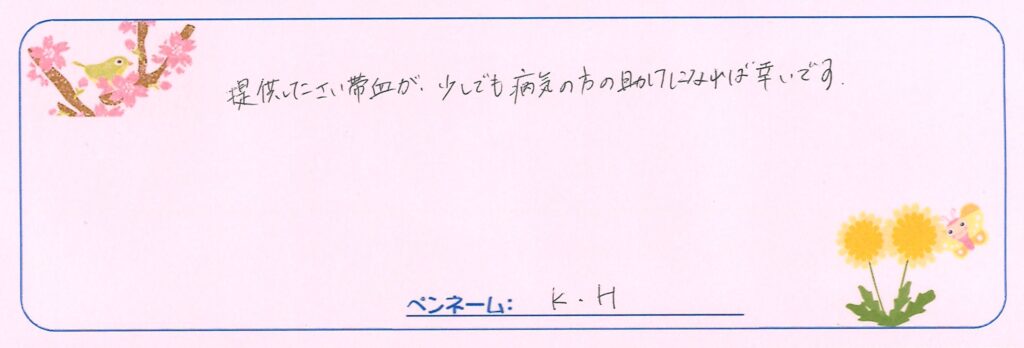 提供したさい帯血が、少しでも病気の方の助けになれば幸いです.
ペンネーム: K.H